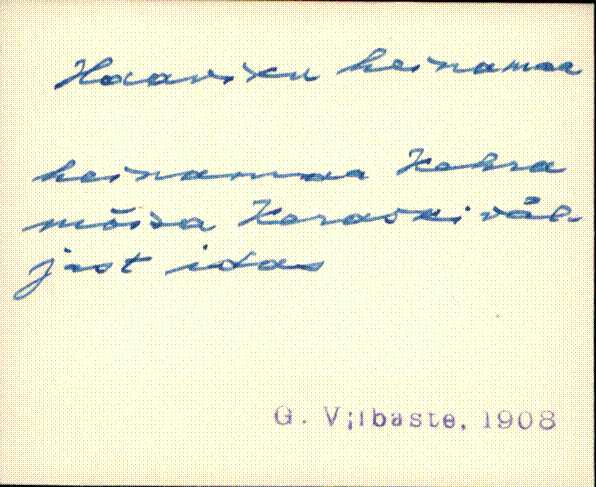 Haaviku heinamaa
heinamaa Kehra
mõisa Karaski väl-
jast idas
G. Vilbaste, 1908